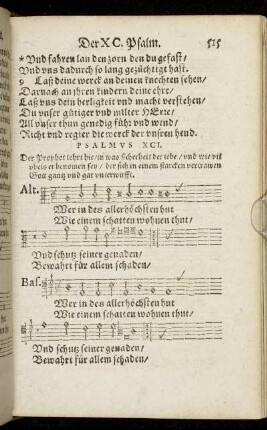 Der XC. Psalm. 515
* Vnd fahren lan den zorn den du gefast/
Vnd vns dadurch so lang gezüchtigt hast.
9 Laß deine werck an deinen knechten sehen/
Darnach an jhren kindern deine ehre/
Laß vns dein herligkeit vnd macht verstehen/
Du vnser gütiger vnd milter HErre/
All vnser thun genedig führ vnd wend/
Richt vnd regier die werck der vnsern hend.
PSALMVS XCI.
Der Prophet lehrt hie/in was sicherheit der lebe/ vnd wie vil
vbels er benomen sey/ der sich in einem starcken vertrawen
Gott gantz vnd gar vnterwirfft.
Alt.
Wer in des allerhöchsten hut
Wie einem schatten wohnen thut/
Vnd schutz seiner genaden/
Bewahrt für allem schaden/
Bas.
Wer in des allerhöchsten hut
Wie einem schatten wohnen thut/
Vnd schutz seiner genaden/
Bewahrt für allem schaden/